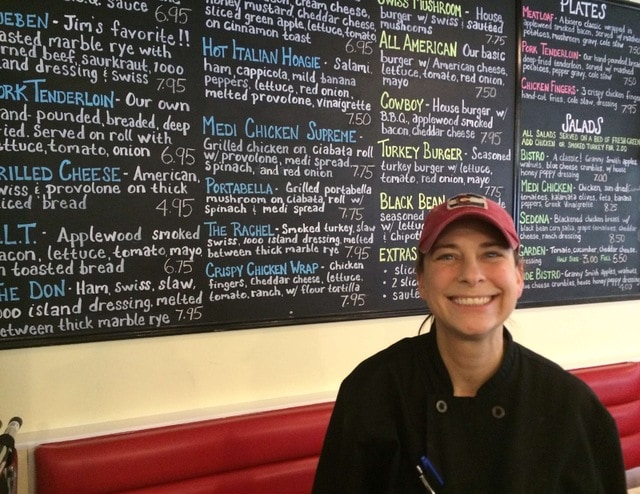 & sauce 6.95
UEBEN - Jim's favorite!!
asted marble rye with
rned beef, saurkraut, 1000
land dressing & swiss 7.95
ORK TENDERLOIN - Our own
and-pounded, breaded, deep
ried. Served on roll with
ttuce, tomato, onion 6.95
RILLED CHEESE - American,
wiss & provolone on thick
liced bread 4.95
.L.T. - Applewood smoked
acon, lettuce, tomato, mayo
n toasted bread 6.75
HE DON - Ham, swiss, slaw,
000 island dressing, melted
between thick marble rye 7.95
cream cheese,
honey mustard, cheddar cheese,
sliced green apple, lettuce, tomato
on cinnamon toast 6.95
HOT ITALIAN HOAGIE - Salami,
ham, cappicola, mild banana
peppers, lettuce, red onion,
melted provolone, vinaigrette
7.50
MEDI CHICKEN SUPREME -
Grilled chicken on ciabata roll
w/ provolone, medi spread,
spinach, and red onion 7.75
PORTABELLA - Grilled portabella
mushroom on ciabata roll w/
spinach & medi spread 7.75
THE RACHEL - Smoked turkey, slaw
swiss, 1000 island dressing, melted
between thick marble rye 7.95
CRISPY CHICKEN WRAP - Chicken
fingers, cheddar cheese, lettuce,
tomato, ranch, w/ flour tortilla
7.95
SWISS MUSHROOM - House
burger w/ swiss & sauteed
mushrooms 7.75
ALL AMERICAN Our basic
burger w/ American cheese,
lettuce, tomato, red onion,
mayo 7.50
COWBOY - House burger, w/
B.B.Q., applewood smoked
bacon, cheddar cheese 7.95
TURKEY BURGER - Seasoned
turkey burger w/ lettuce,
tomato, red onion, mayo
7.75
BLACK BEAN
seasoned
w/ lettuce
& Chipot
EXTRAS
• slic
• 2 slic
• saute
PLATES
MEATLOAF - A bistro classic wrapped in
applewood smoked bacon, served w/ mashed
potatoes, mushroom gravy, cole slaw
PORK TENDERLOIN - Our hand pounded,
deep-fried tenderloin, served w/ mashed
potatoes, pepper gravy, cole slaw
CHICKEN FINGERS - 3 crispy chicken fingers,
hand-cut fries, cole slaw, 7.95
SALADS
ALL SALADS SERVED ON A BED OF FRESH GREENS
ADD CHICKEN OR SMOKED TURKEY FOR 2.00
BISTRO - A classic! Granny Smith apples,
walnuts, blue cheese crumbles, w/ house
honey poppy dressing
MEDI CHICKEN - Chicken, sun dried
tomatoes, kalamata olives, feta, banana
peppers, Greek Vinaigrette 8.25
SEDONA - Blackened chicken breast w/
black bean corn salsa, cheddar cheese,
chipotle ranch dressing 8.50
GARDEN - Tomato, cucumber, cheddar cheese
dressing HALF SIZE 3.00 FULL 5.50
SIDE BISTRO - Granny Smith apples, walnuts,
blue cheese crumbles, house honey poppy dressing